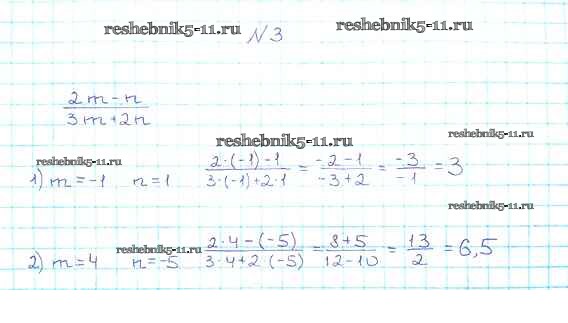 reshebnik5-11.ru reshebnik5-11.ru
N 3
2m-n / 3m+2n
reshebnik5-11.ru reshebnik5-11.ru
reshebnik5-11.ru
1) m=-1 n=1 2·(-1)-1 / 3·(-1)+2·1 = -2-1 / -3+2 = -3 / -1 = 3
reshebnik5-11.ru
reshebnik5-11.ru
2) m=4 n=-5 2·4-(-5) / 3·4+2·(-5) = 8+5 / 12-10 = 13 / 2 = 6,5